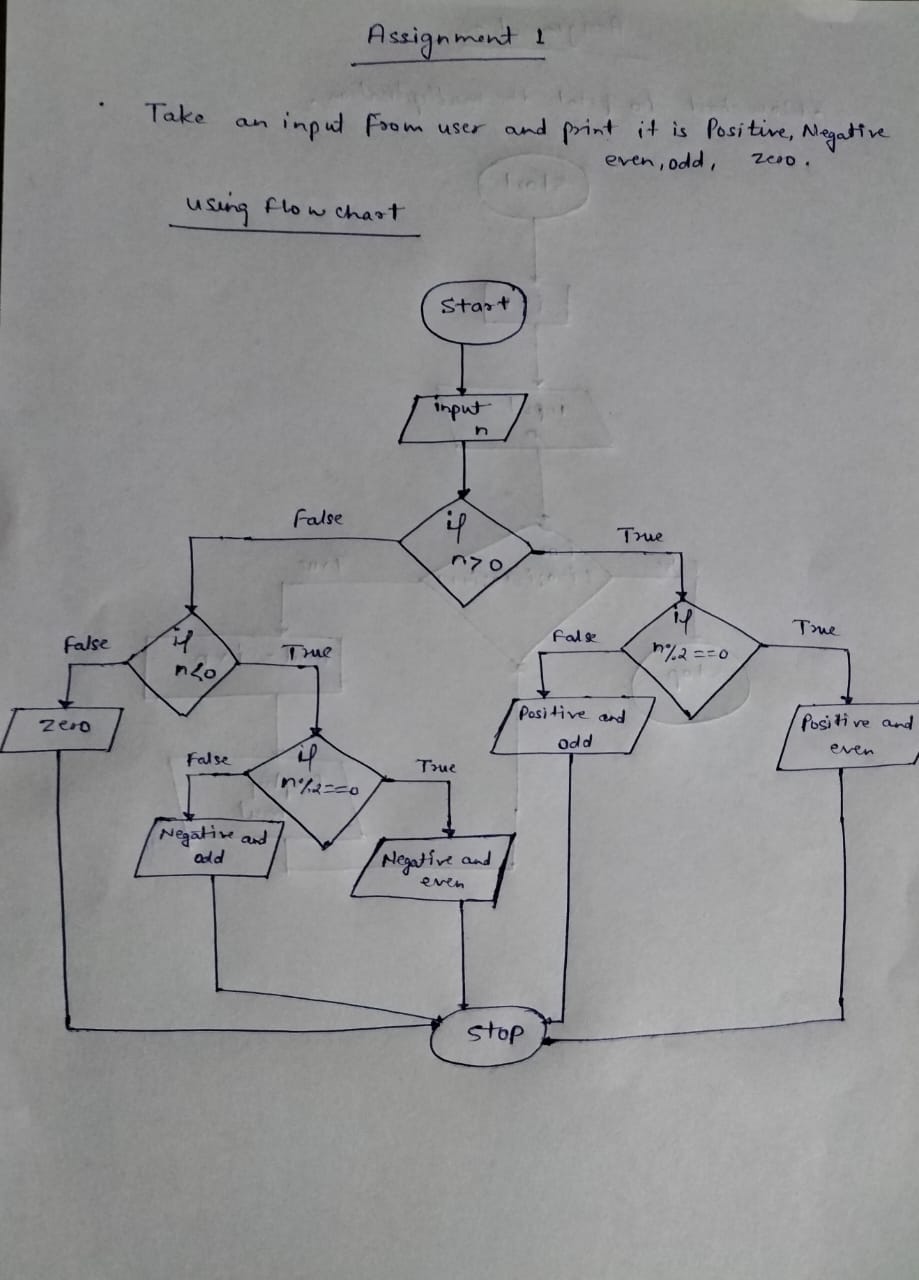 Assignment 1
Take an input from user and print it is Positive, Negative
even, odd, zero.
using flow chart
Start
input
n
if
n>0
False
True
if
n<0
False
True
if
n%2==0
False
True
zero
Positive and
odd
Positive and
even
if
n%2==0
False
True
Negative and
odd
Negative and
even
Stop